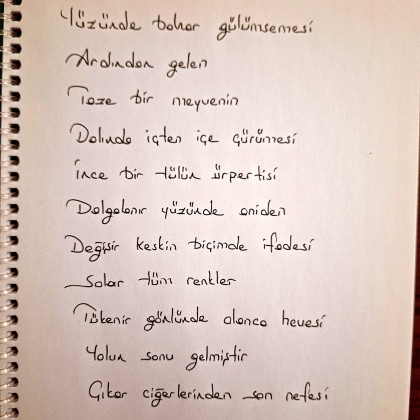 Yüzünde bahar gülümsemesi
Ardından gelen
Taze bir meyvenin
Dalında içten içe çürümesi
İnce bir tülün ürpertisi
Dalgalanır yüzünde aniden
Değişir keskin biçimde ifadesi
Solar tüm renkler
Tükenir gönlünde olanca hevesi
Yolun sonu gelmiştir
Çıkar ciğerlerinden son nefesi